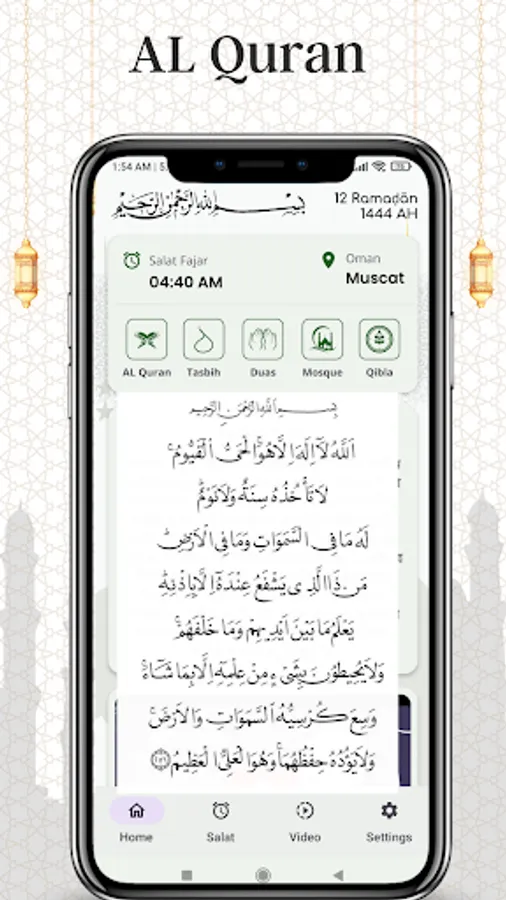 AL Quran
1:54 AM | 5.
بسم الله الرحمن الرحيم
12 Ramaḍān
1444 AH
Salat Fajar
04:40 AM
Oman
Muscat
AL Quran
Tasbih
Duas
Mosque
Qibla
بسم الله الرحمن الرحيم
اَللّٰهُ لَاۤ اِلٰهَ اِلَّا هُوَۚ اَلْحَىُّ الْقَيُّوْمُ ۚ
لَا تَأْخُذُهٗ سِنَةٌ وَّلَا نَوْمٌؕ
لَهٗ مَا فِى السَّمٰوٰتِ وَمَا فِى الْاَرْضِؕ
مَنْ ذَا الَّذِىْ يَشْفَعُ عِنْدَهٗۤ اِلَّا بِاِذْنِهٖؕ
يَعْلَمُ مَا بَيْنَ اَيْدِيْهِمْ وَمَا خَلْفَهُمْۚ
وَلَا يُحِيْطُوْنَ بِشَىْءٍ مِّنْ عِلْمِهٖۤ اِلَّا بِمَا شَآءَۚ
وَسِعَ كُرْسِيُّهُ السَّمٰوٰتِ وَالْاَرْضَۚ
وَلَا يَئُوْدُهٗ حِفْظُهُمَاۚ وَهُوَ الْعَلِىُّ الْعَظِيْمُ
Home
Salat
Video
Settings